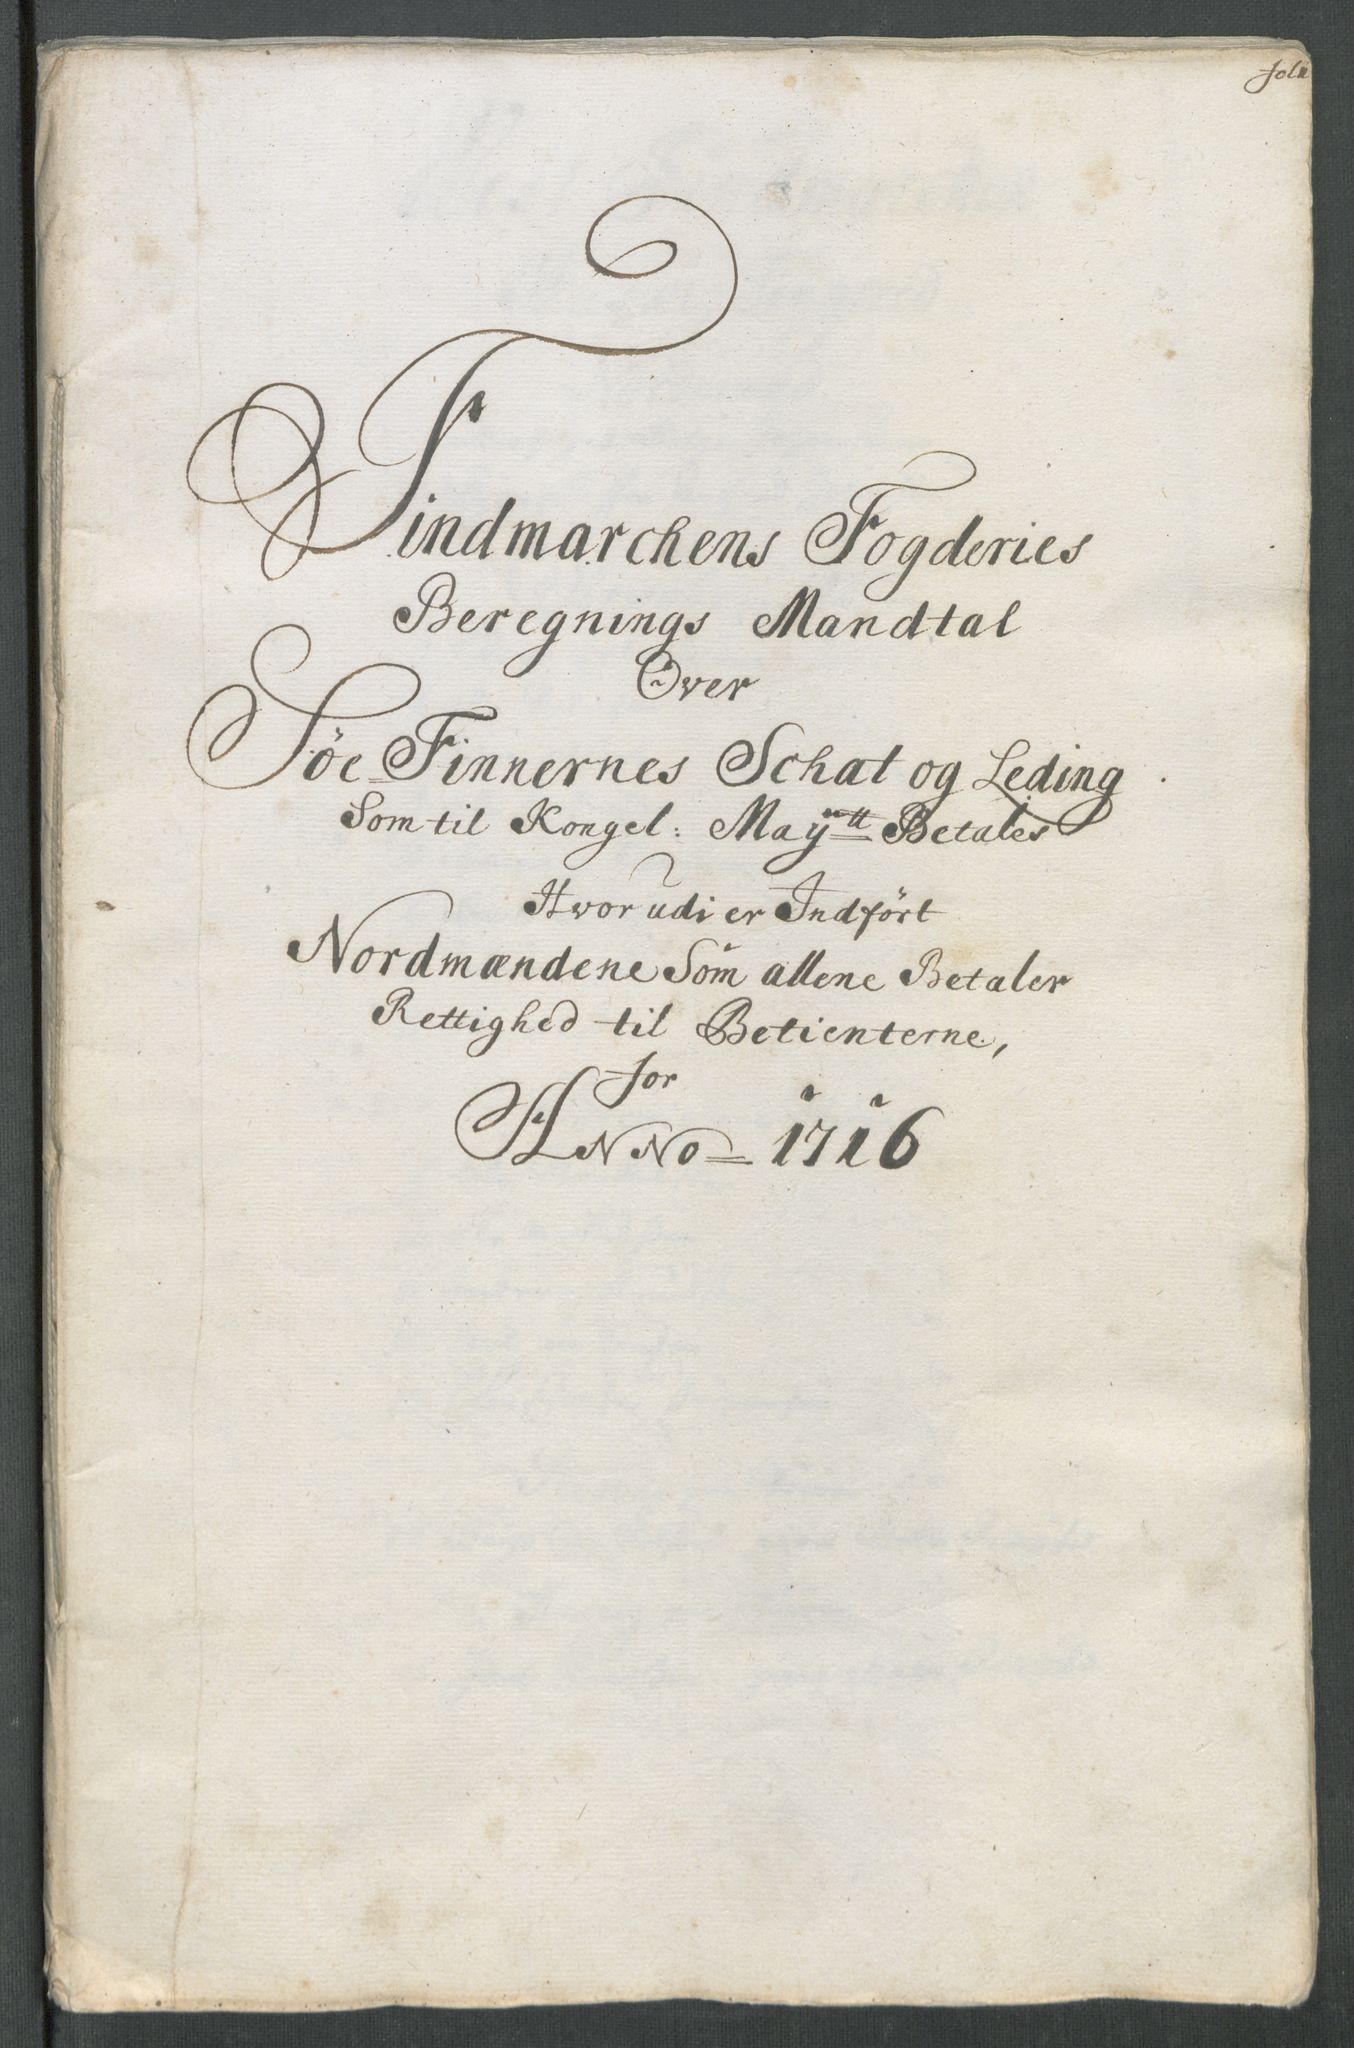 fol:1
Findmarchens Fogderies
Beregnings Mandtal
Over
Söe-Finnernes Schat og Leding
Som til Kongel: Mayᵗᵗ Betales
Hvor udi er Indfört
Nordmændene Som allene Betaler
Rettighed til Betienterne,
for
ANNO 1716